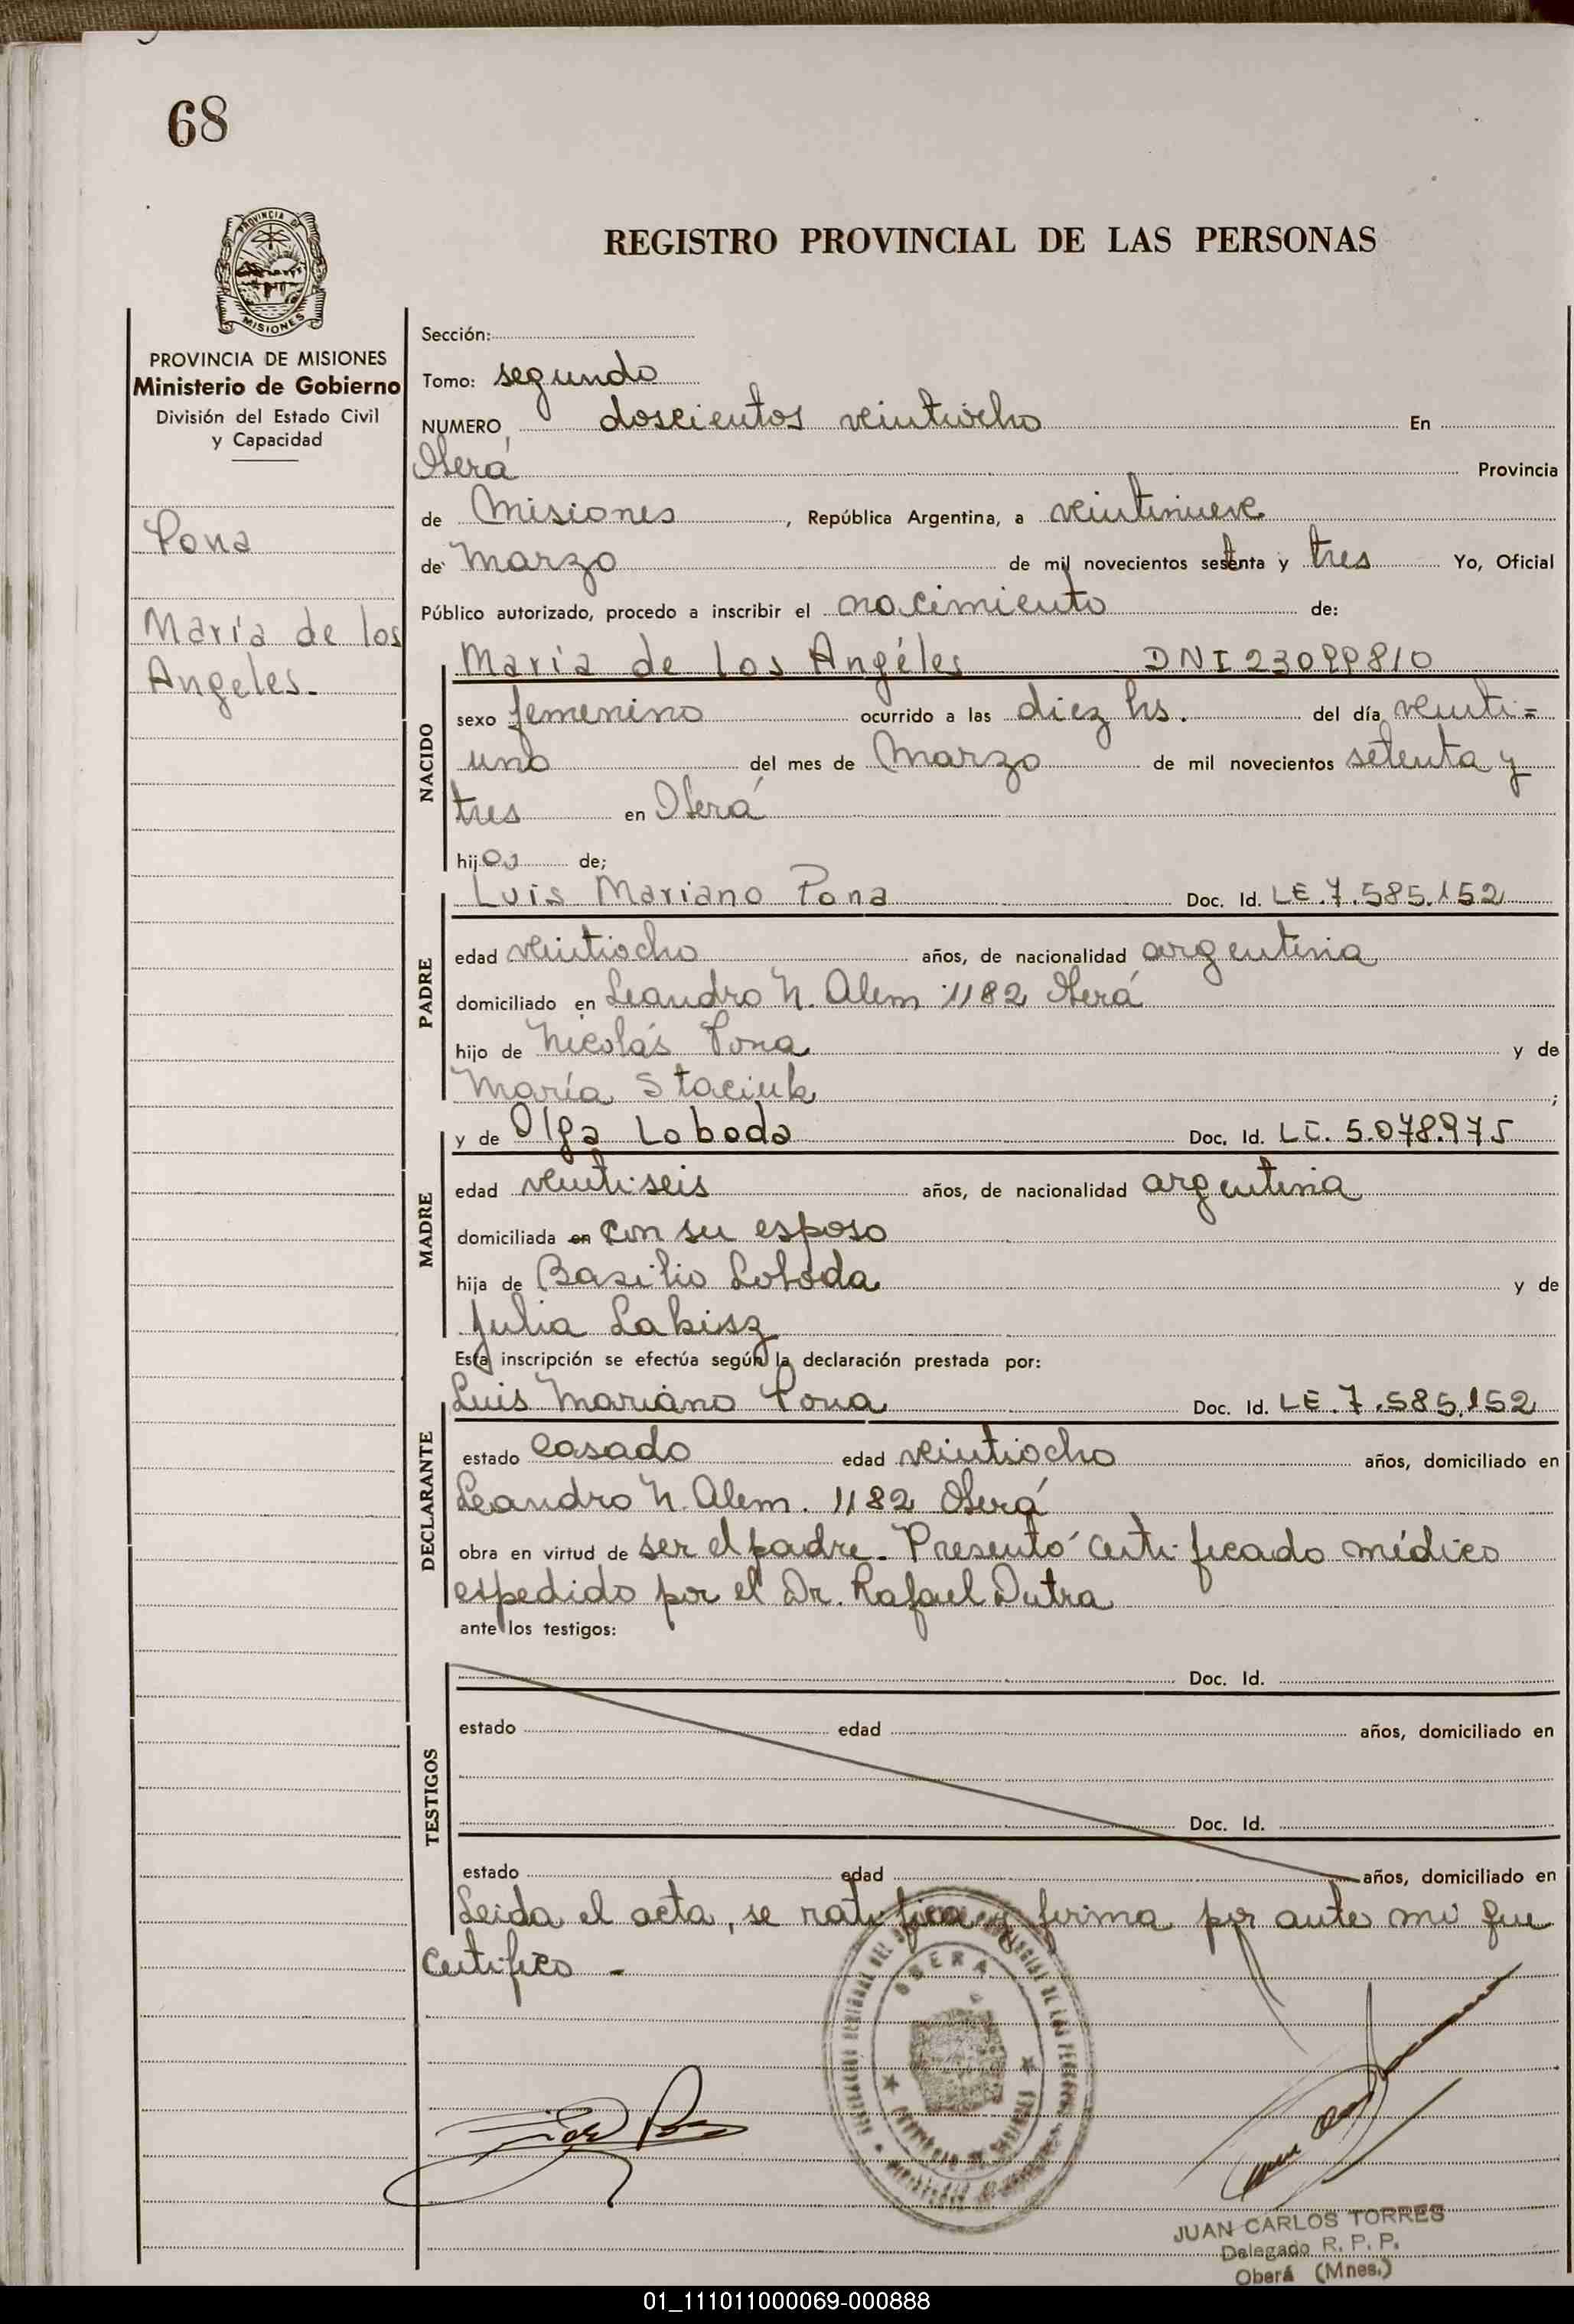 68
PROVINCIA DE
MISIONES
REGISTRO PROVINCIAL DE LAS PERSONAS
PROVINCIA DE MISIONES
Ministerio de Gobierno
División del Estado Civil
y Capacidad
Pona
María de los
Angeles.
Sección:
Tomo: segundo
NUMERO doscientos veintiocho En
Oberá Provincia
de Misiones, República Argentina, a veintinueve
de Marzo de mil novecientos setenta y tres Yo, Oficial
Público autorizado, procedo a inscribir el nacimiento de:
NACIDO
María de los Angéles DNI 23099810
sexo femenino ocurrido a las diez hs. del día veinti=
uno del mes de Marzo de mil novecientos setenta y
tres en Oberá
hija de;
PADRE
Luis Mariano Pona Doc. Id. LE.7.585.152
edad veintiocho años, de nacionalidad argentina
domiciliado en Leandro N. Alem 1182 Oberá
hijo de Nicolás Pona y de
María Staciuk ;
MADRE
y de Olga Loboda Doc. Id. LC. 5.078.975
edad veintiseis años, de nacionalidad argentina
domiciliada en con su esposo
hija de Basilio Loboda y de
Julia Lakisz
Esta inscripción se efectúa según la declaración prestada por:
DECLARANTE
Luis Mariano Pona Doc. Id. LE.7.585.152
estado casado edad veintiocho años, domiciliado en
Leandro N. Alem. 1182 Oberá
obra en virtud de ser el padre. Presentó certificado médico
espedido por el Dr. Rafael Dutra
ante los testigos:
TESTIGOS
Doc. Id.
estado edad años, domiciliado en
Doc. Id.
estado edad años, domiciliado en
Leida el acta, se ratifica y firma por ante mi que
certifico -
OBERA
JUAN CARLOS TORRES
Delegado R. P. P.
Oberá (Mnes.)
01_111011000069-000888